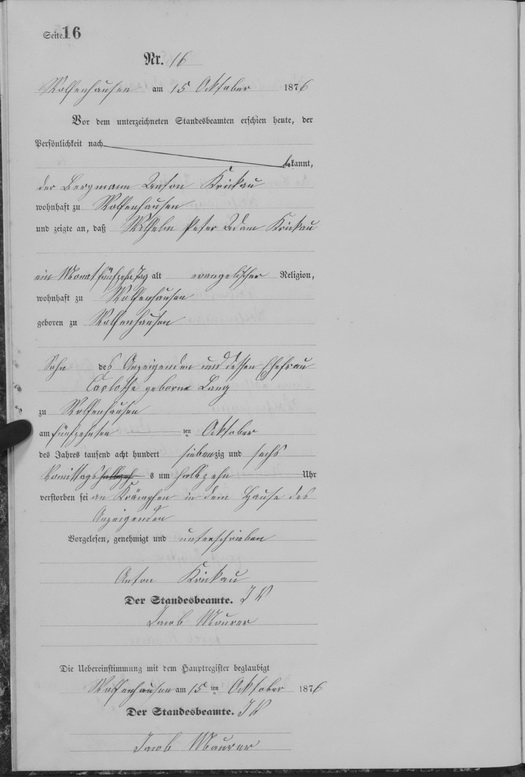 Seite 16
Nr. 16
Wolfenhausen am 15 Oktober 1876
Vor dem unterzeichneten Standesbeamten erschien heute, der
Persönlichkeit nach
bekannt,
der Bergmann Anton Krickau
wohnhaft zu Wolfenhausen
und zeigte an, daß Wilhelm Peter Adam Krickau
ein Monat fünfzehn Tag alt evangelischer Religion,
wohnhaft zu Wolfenhausen
geboren zu Wolfenhausen
Sohn des Anzeigenden und dessen Ehefrau
Carlotte geborne Lang
zu Wolfenhausen
am fünfzehnten ten Oktober
des Jahres tausend acht hundert siebenzig und sechs
Vormittags um halb zehn Uhr
verstorben sei an Krämpfen in dem Hause des
Anzeigenden
Vorgelesen, genehmigt und unterschrieben
Anton Krickau
Der Standesbeamte. I V
Jacob Maurer
Die Uebereinstimmung mit dem Hauptregister beglaubigt
Wolfenhausen am 15 ten Oktober 1876
Der Standesbeamte. I V
Jacob Maurer